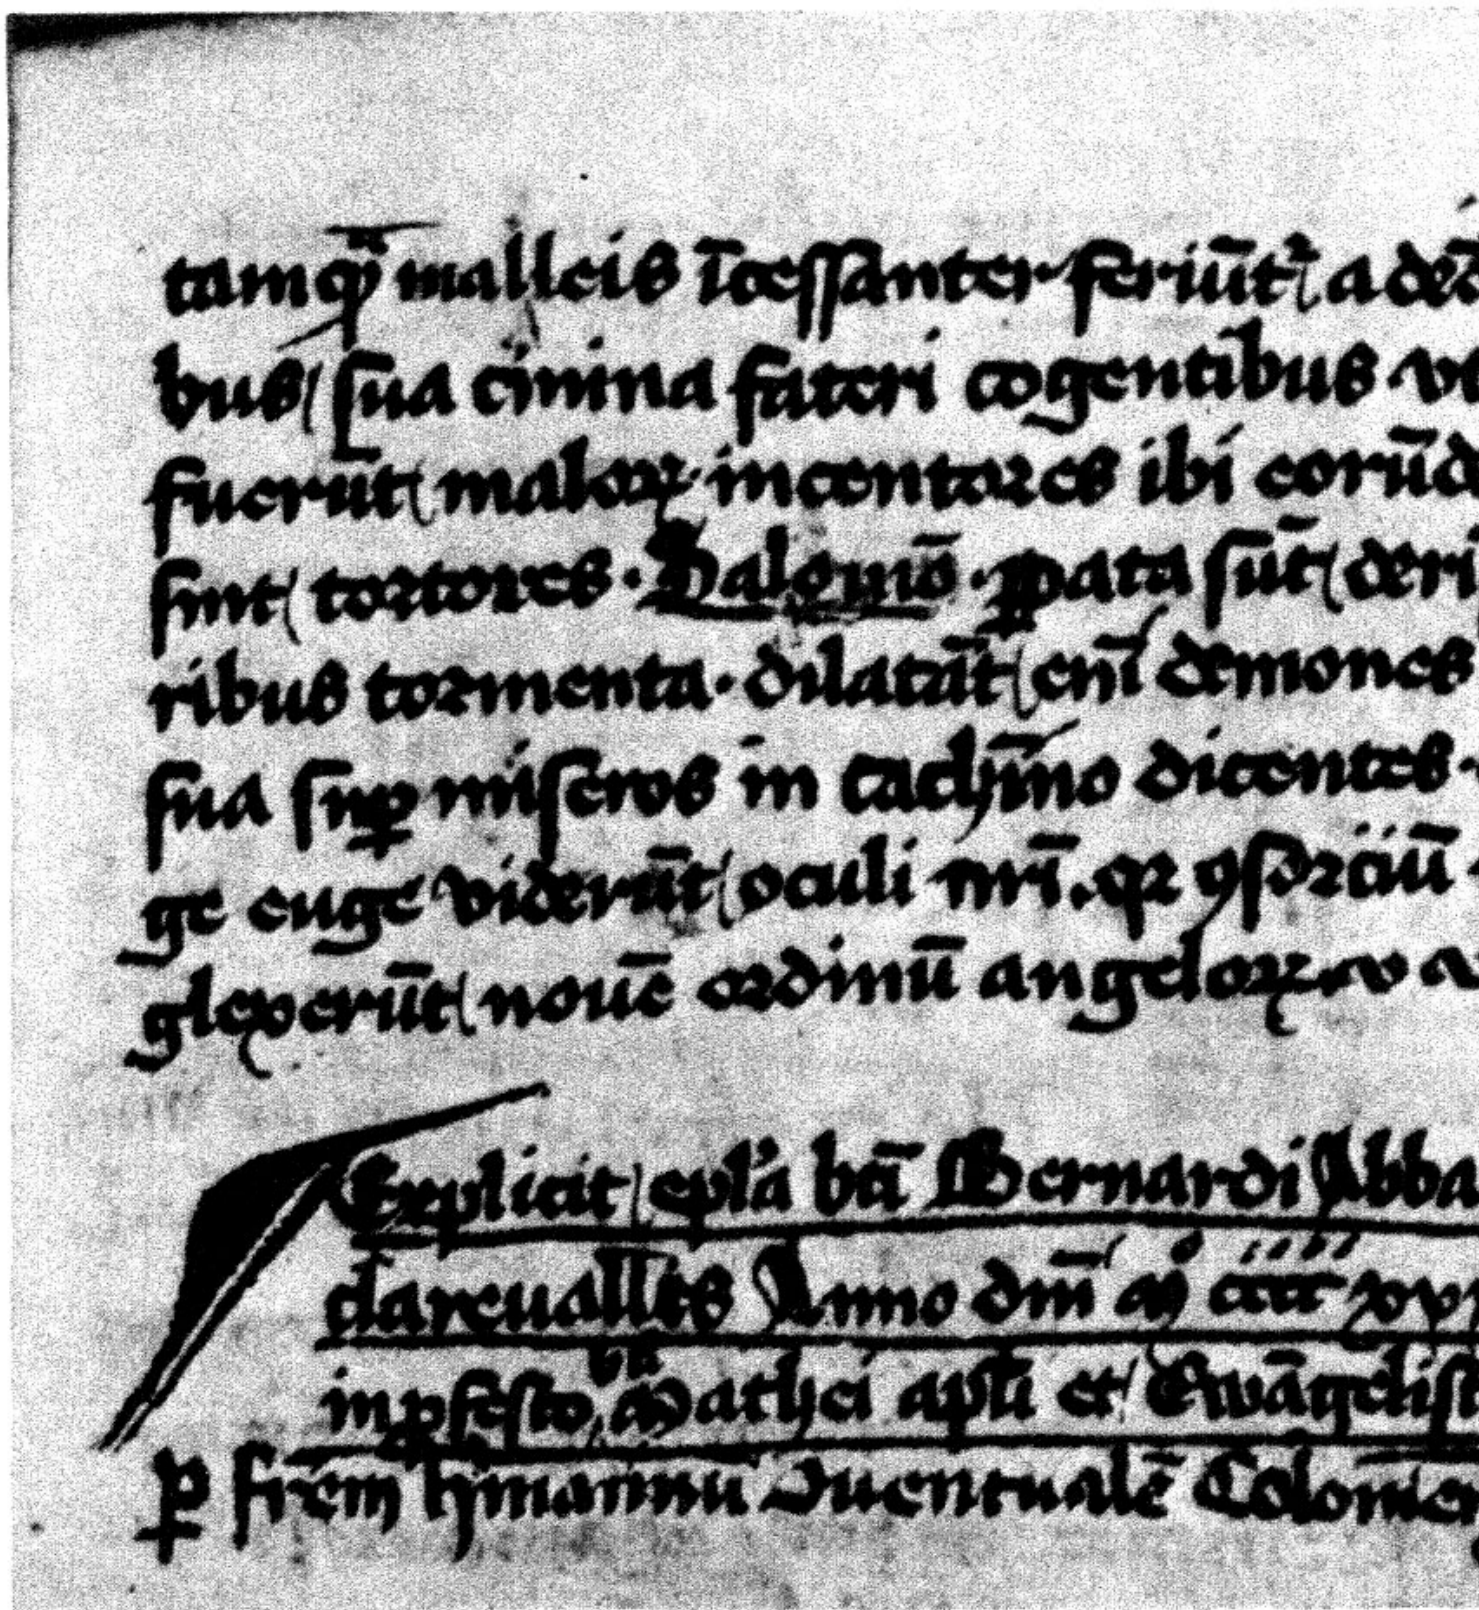 tamqᷓ malleis īcessanter feriūt᷑ a de
bus sua cͥmina fateri cogentibus
fuerūt maloꝝ incentores ibi eorūd
sint tortores · Salomō · ꝑata sūt deri
ribus tormenta · dilatāt enī demones
sua suꝑ miseros in cachīno dicentes ·
ge euge viderūt oculi nr̄i · qꝛ ꝯsorciū
glexerūt nouē ordinū angeloꝝ
Explicit epl̓a bt̄i Bernardi Abba
clareuall̄es Anno dn̄i mͦ cccc xv
in ꝓfesto bt̄i Mathei apl̄i et Ewāgelist
ꝑ fr̄em hīmannū Juentualē Colonien